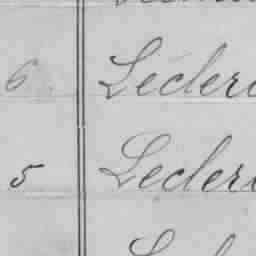 6 Lecler
5 Lecler